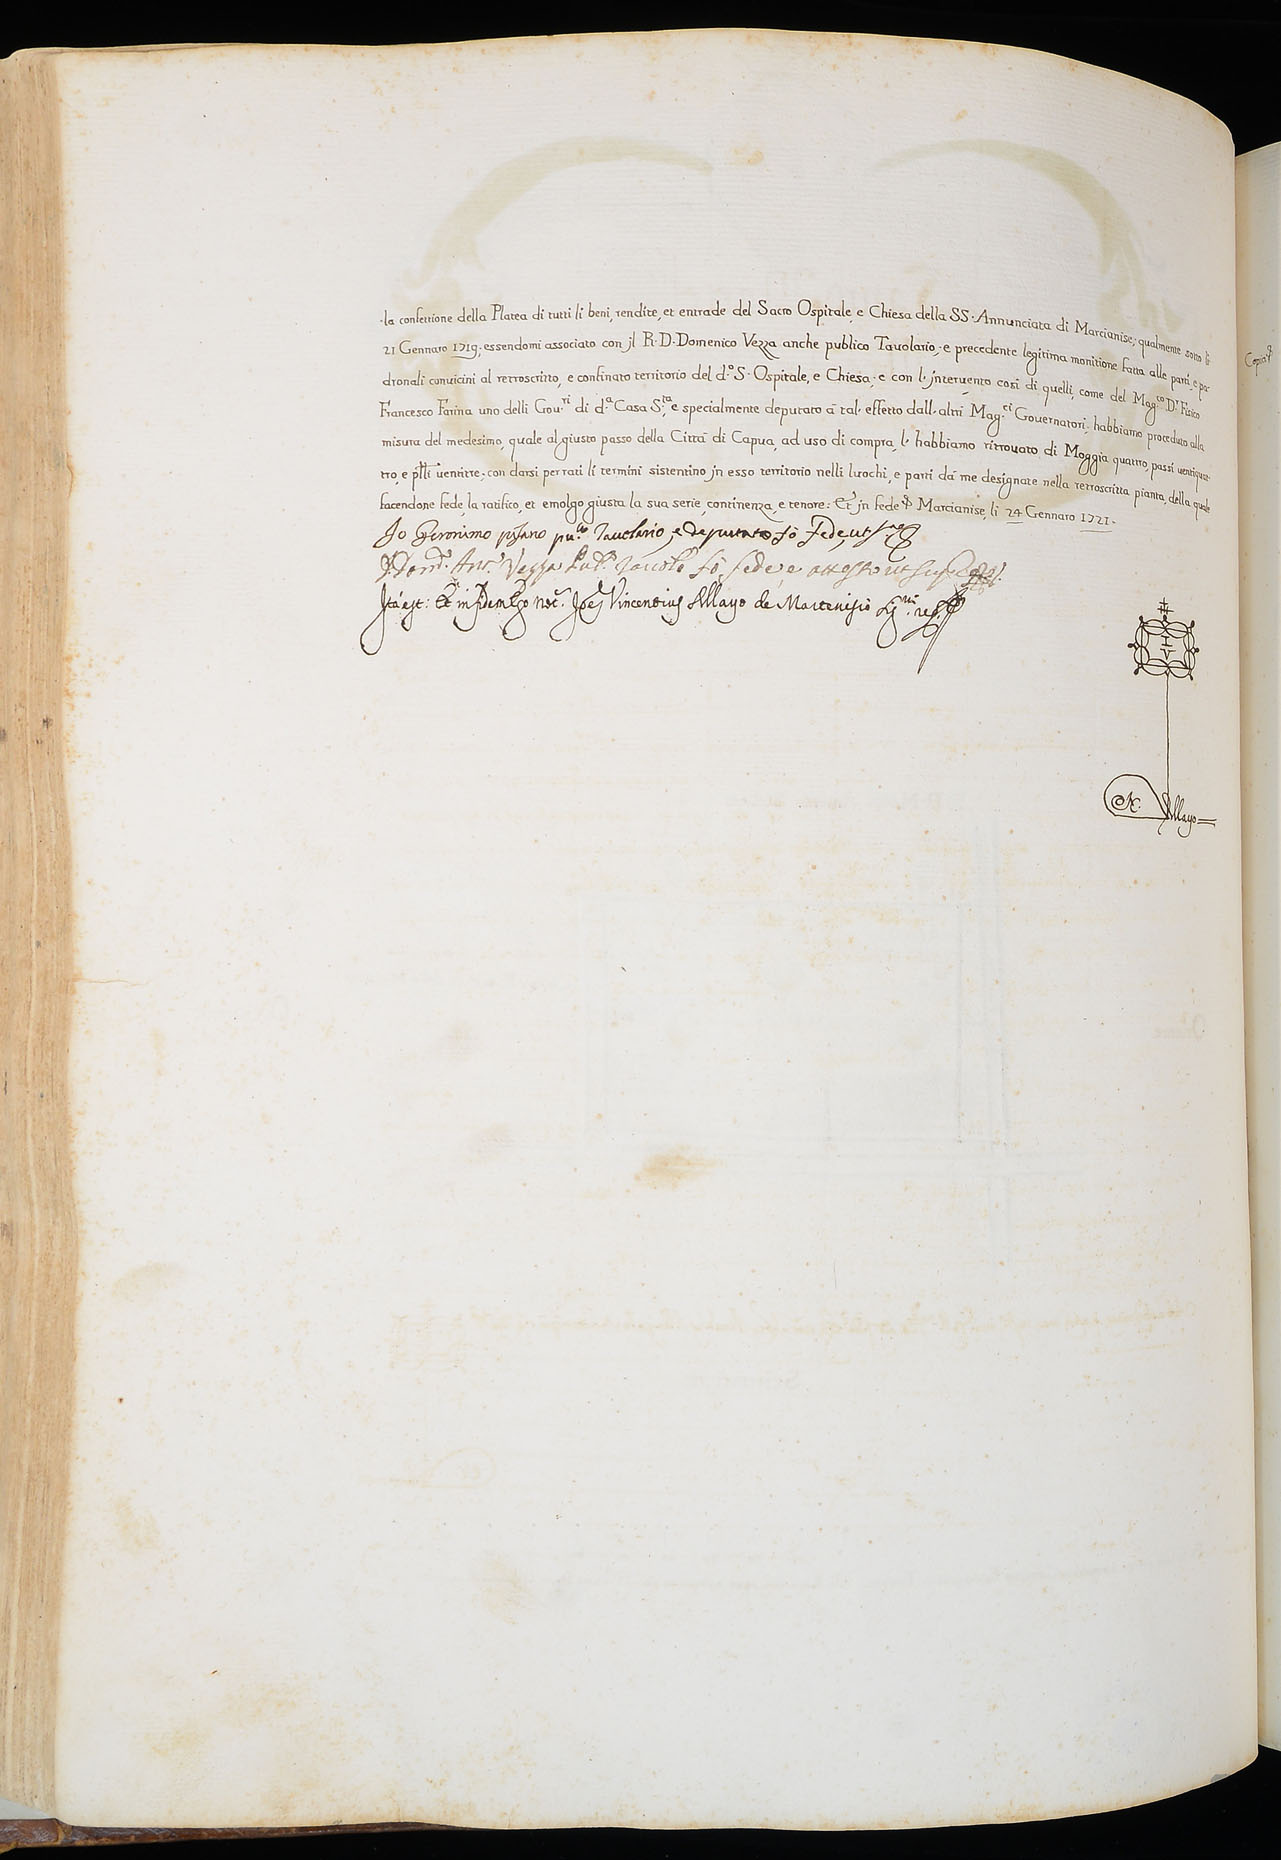 la confettione della Platea di tutti li beni, rendite, et entrade del Sacro Ospitale, e Chiesa della SS. Annunciata di Marcianise; qualmente sotto li
21 Gennaro 1719; essendomi associato con jl R. D. Domenico Vezza anche publico Tavolario; e precedente legitima monitione fatta alle parti, e pa-
dronali convicini al retroscritto, e confinato territorio del d.º S. Ospitale, e Chiesa; e con l'jntervento così di quelli, come del Mag.co D.r Fisico
Francesco Farina uno delli Gov.ri di d.ª Casa S.ta, e specialmente deputato à tal' effetto dall'altri Mag.ci Governatori; habbiamo proceduto alla
misura del medesimo, quale al giusto passo della Città di Capua, ad uso di compra, l'habbiamo ritrovato di Moggia quattro, passi ventiquat-
tro, e ventitre; con darsi per rati li termini sistentino jn esso territorio nelli luochi, e parti dà me designate nella retroscritta pianta, della quale
facendone fede, la ratifico, et emolgo giusta la sua serie, continenza, e tenore: Et jn fede Marcianise, li 24 Gennaro 1721.
Io Geronimo pu.co Tavolario, e deputato fò fede, ut
D. Dom.º Ant.º Vezza Pub.º Tavol.º fò fede, e attesto ut sup.
Ita est: Et in fidem Ego Not.s Vincentius Allayo de
I V
N. Allayo
Copia